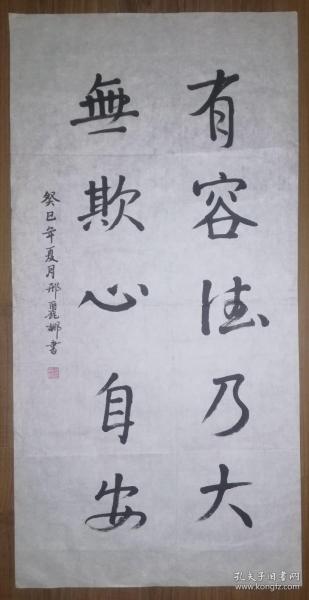 有容德乃大
無欺心自安
癸巳年夏月邢麗娜書
孔夫子旧书网
www.kongfz.com